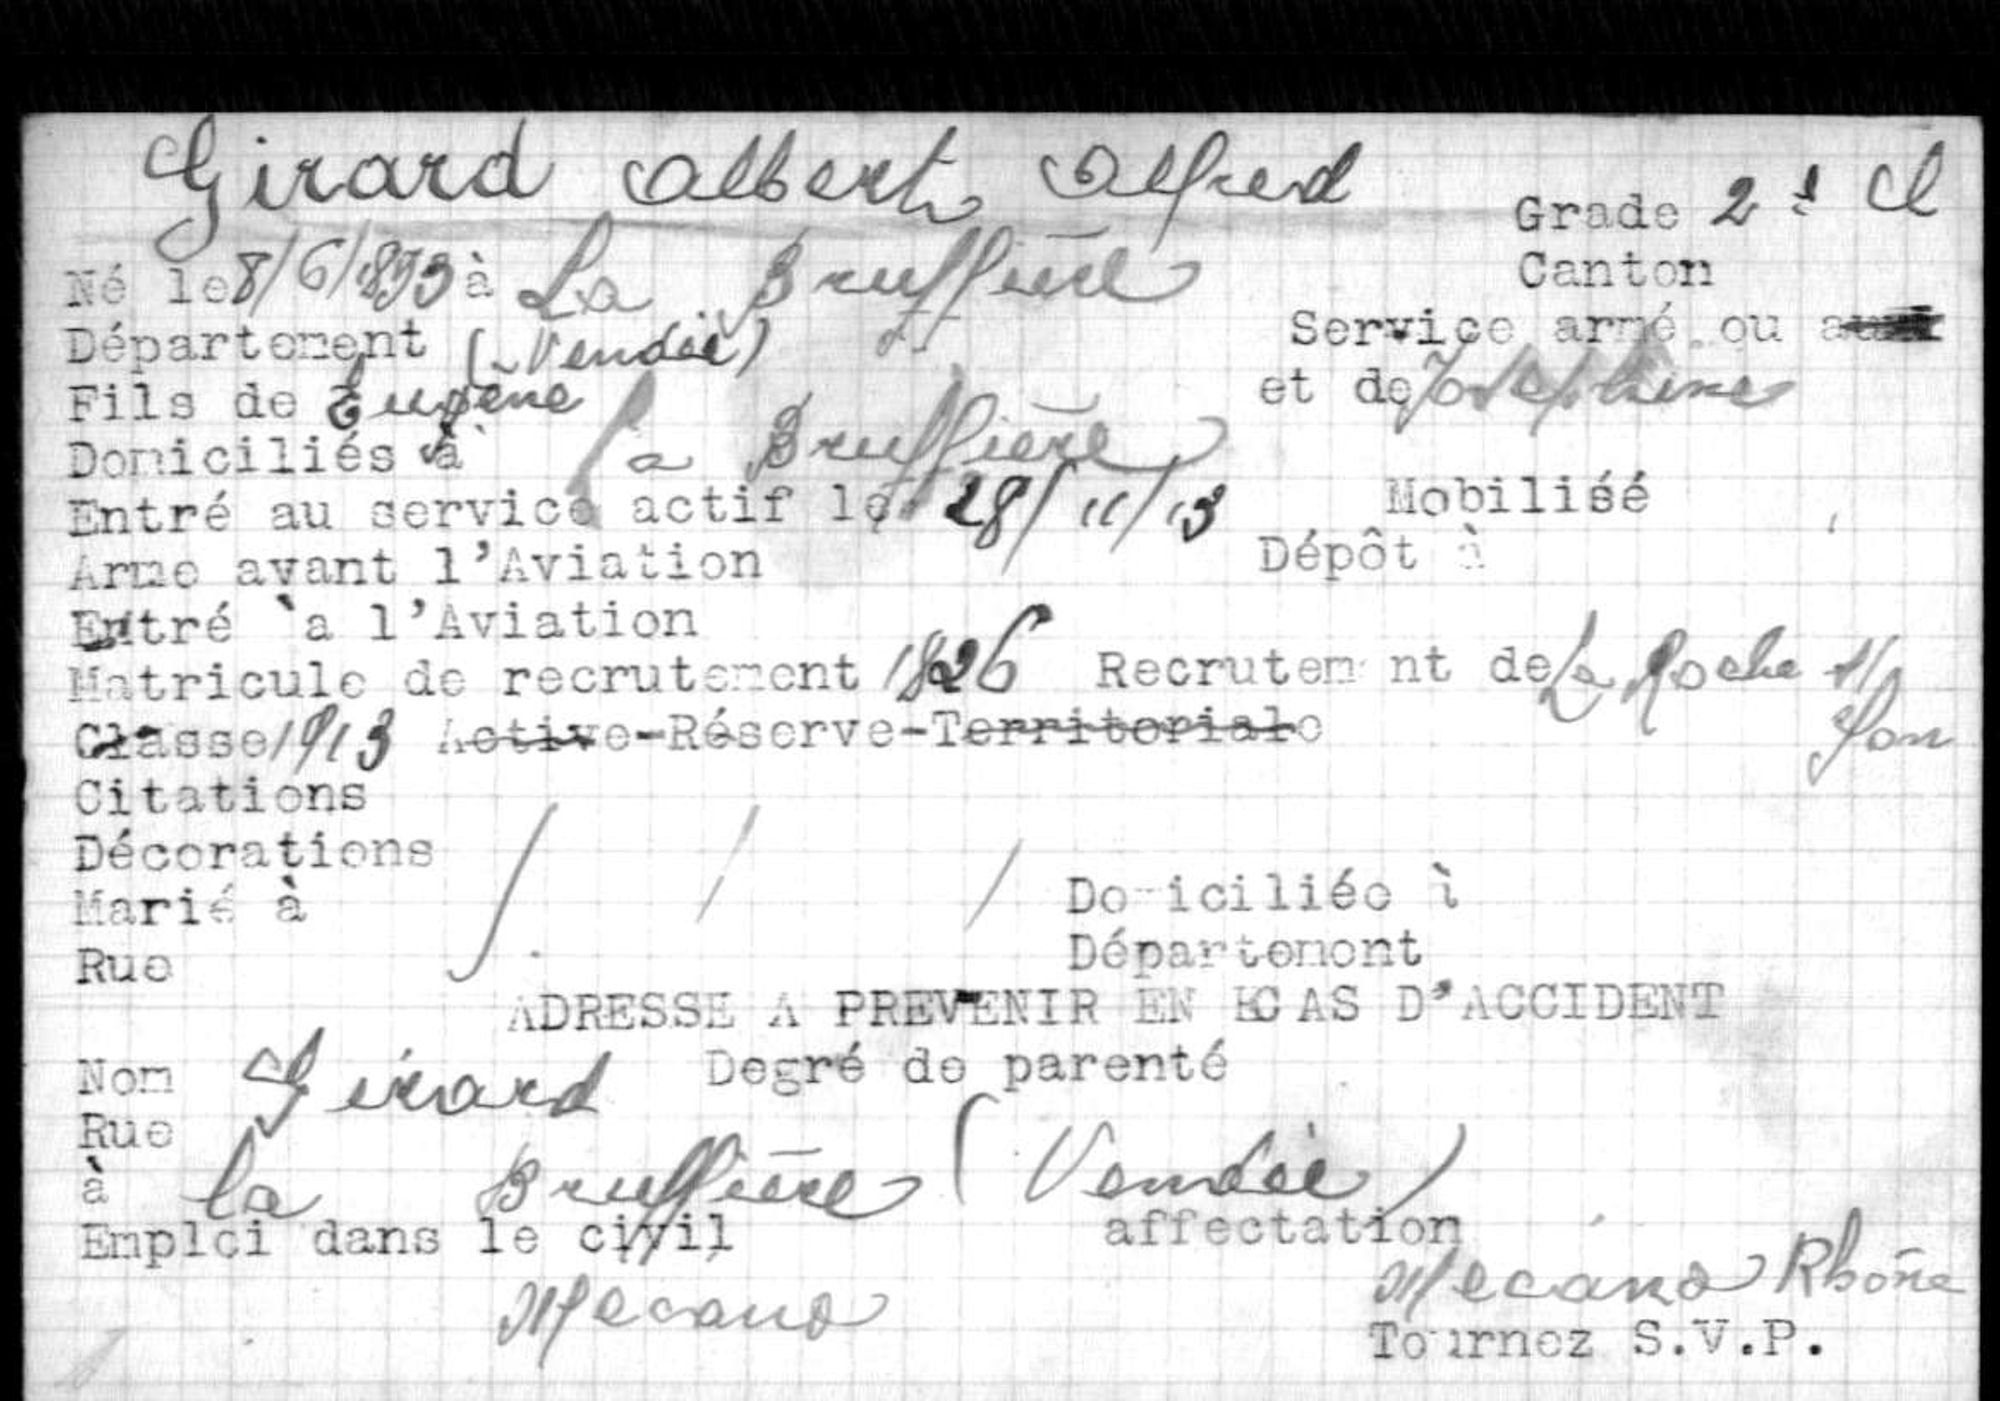 Girard Albert Alfred
Grade 2e Cl
Né le 8/6/1893 à La Bruffière
Canton
Département (Vendée)
Service armé ou
Fils de Eugène et de Joséphine
Domiciliés à la Bruffière
Entré au service actif le 28/11/13 Mobilisé
Arme avant l'Aviation Dépôt à
Entré à l'Aviation
Matricule de recrutement 1826 Recrutement de La Roche s/
Yon
Classe 1913 Active-Réserve-Territoriale
Citations
Décorations
Marié à Domiciliée à
Rue Département
ADRESSE A PREVENIR EN CAS D'ACCIDENT
Nom Girard Degré de parenté
Rue
à la Bruffière (Vendée)
Emploi dans le civil affectation
Mecano Mecano Rhône
Tournez S.V.P.